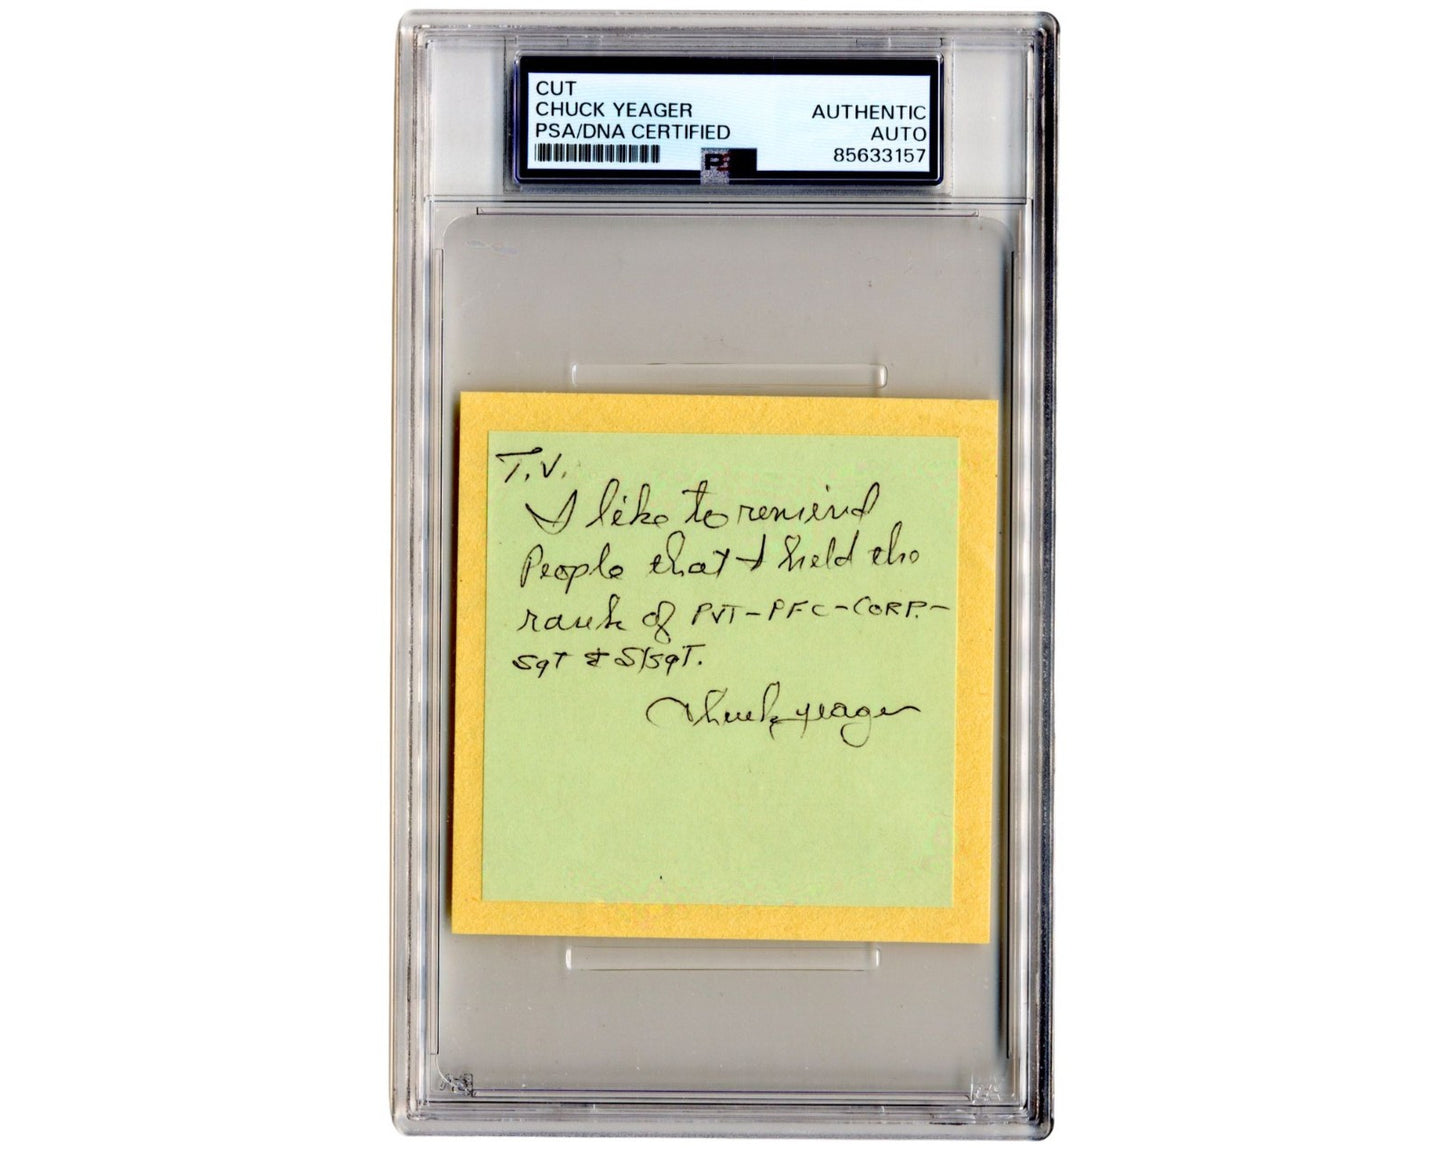 CUT
CHUCK YEAGER
PSA/DNA CERTIFIED
AUTHENTIC
AUTO
85633157
T.V.
I like to remind
People that I held the
rank of PVT-PFC-CORP.-
SgT & S/SgT.
Chuck Yeager